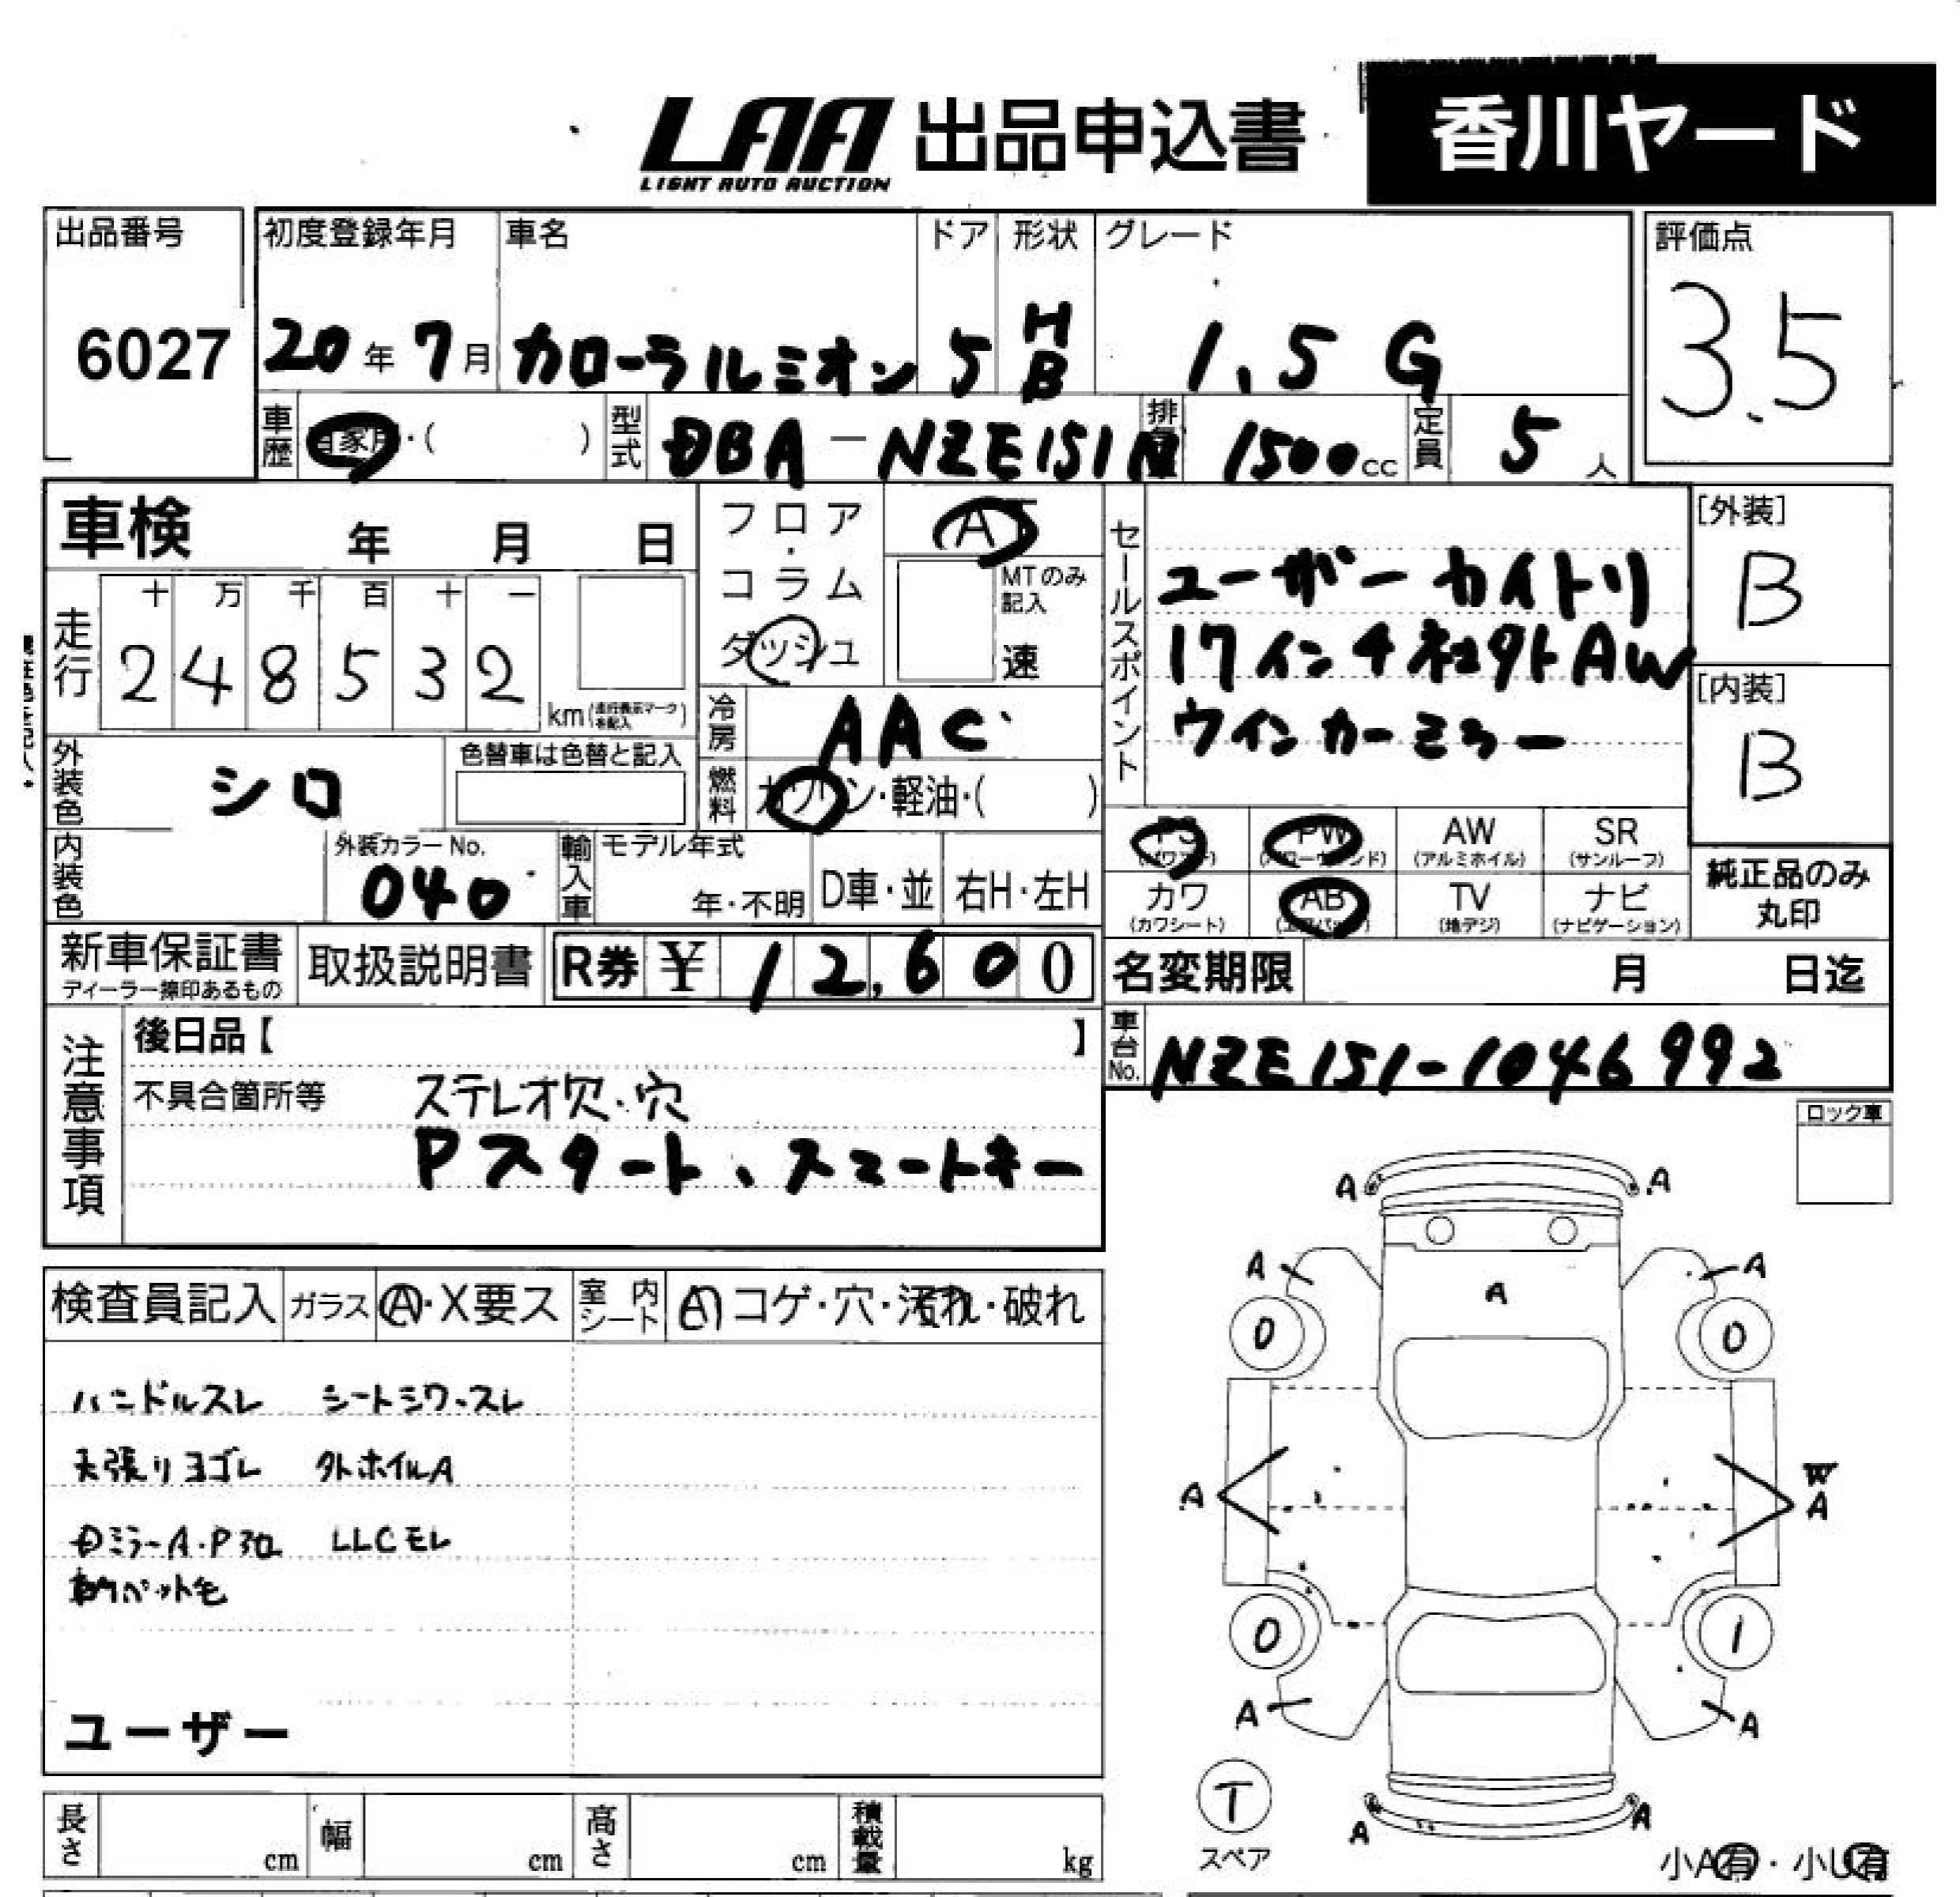 LAA 出品申込書 香川ヤード
LIGHT AUTO AUCTION
出品番号 初度登録年月 車名 ドア 形状 グレード 評価点
6027 20年7月 カローラルミオン 5 HB 1.5 G 3.5
車歴 自家用・( ) 型式 DBA-NZE151N 排気 1500cc 定員 5人
車検 年 月 日 フロア・コラム ダッシュ AT
MTのみ記入 速
セールスポイント
ユーザーカイトリ
17インチ社外AW
ウインカーミラー
[外装]
B
[内装]
B
走行 十 万 千 百 十 一
2 4 8 5 3 2 km(走行表示マークを記入)
冷房 AAC
外装色 シロ 色替車は色替と記入 燃料 ガソリン・軽油・( )
PS PW AW SR
(パワステ) (パワーウィンド) (アルミホイル) (サンルーフ)
カワ AB TV ナビ
(カワシート) (エアバック) (地デジ) (ナビゲーション)
純正品のみ
丸印
内装色 外装カラーNo. 040 輸入車 モデル年式 年・不明 D車・並 右H・左H
新車保証書 取扱説明書 R券 ¥ 12,600 名変期限 月 日迄
ディーラー捺印あるもの
車台No. NZE151-1046992
注意事項 後日品【 】
不具合箇所等 ステレオ欠・穴
Pスタート、スマートキー
ロック車
検査員記入 ガラス A・X要ス 室内シート A コゲ・穴・汚れ・破れ
ハンドルスレ シートシワ・スレ
天張りヨゴレ 外ホイルA
DミラーA・P
LLCモレ
ペット毛
ユーザー
長さ cm 幅 cm 高さ cm 積載量 kg
A A
A A
A
0 0
A W
A
0 1
A A
T
スペア
A A
小A有・小U有